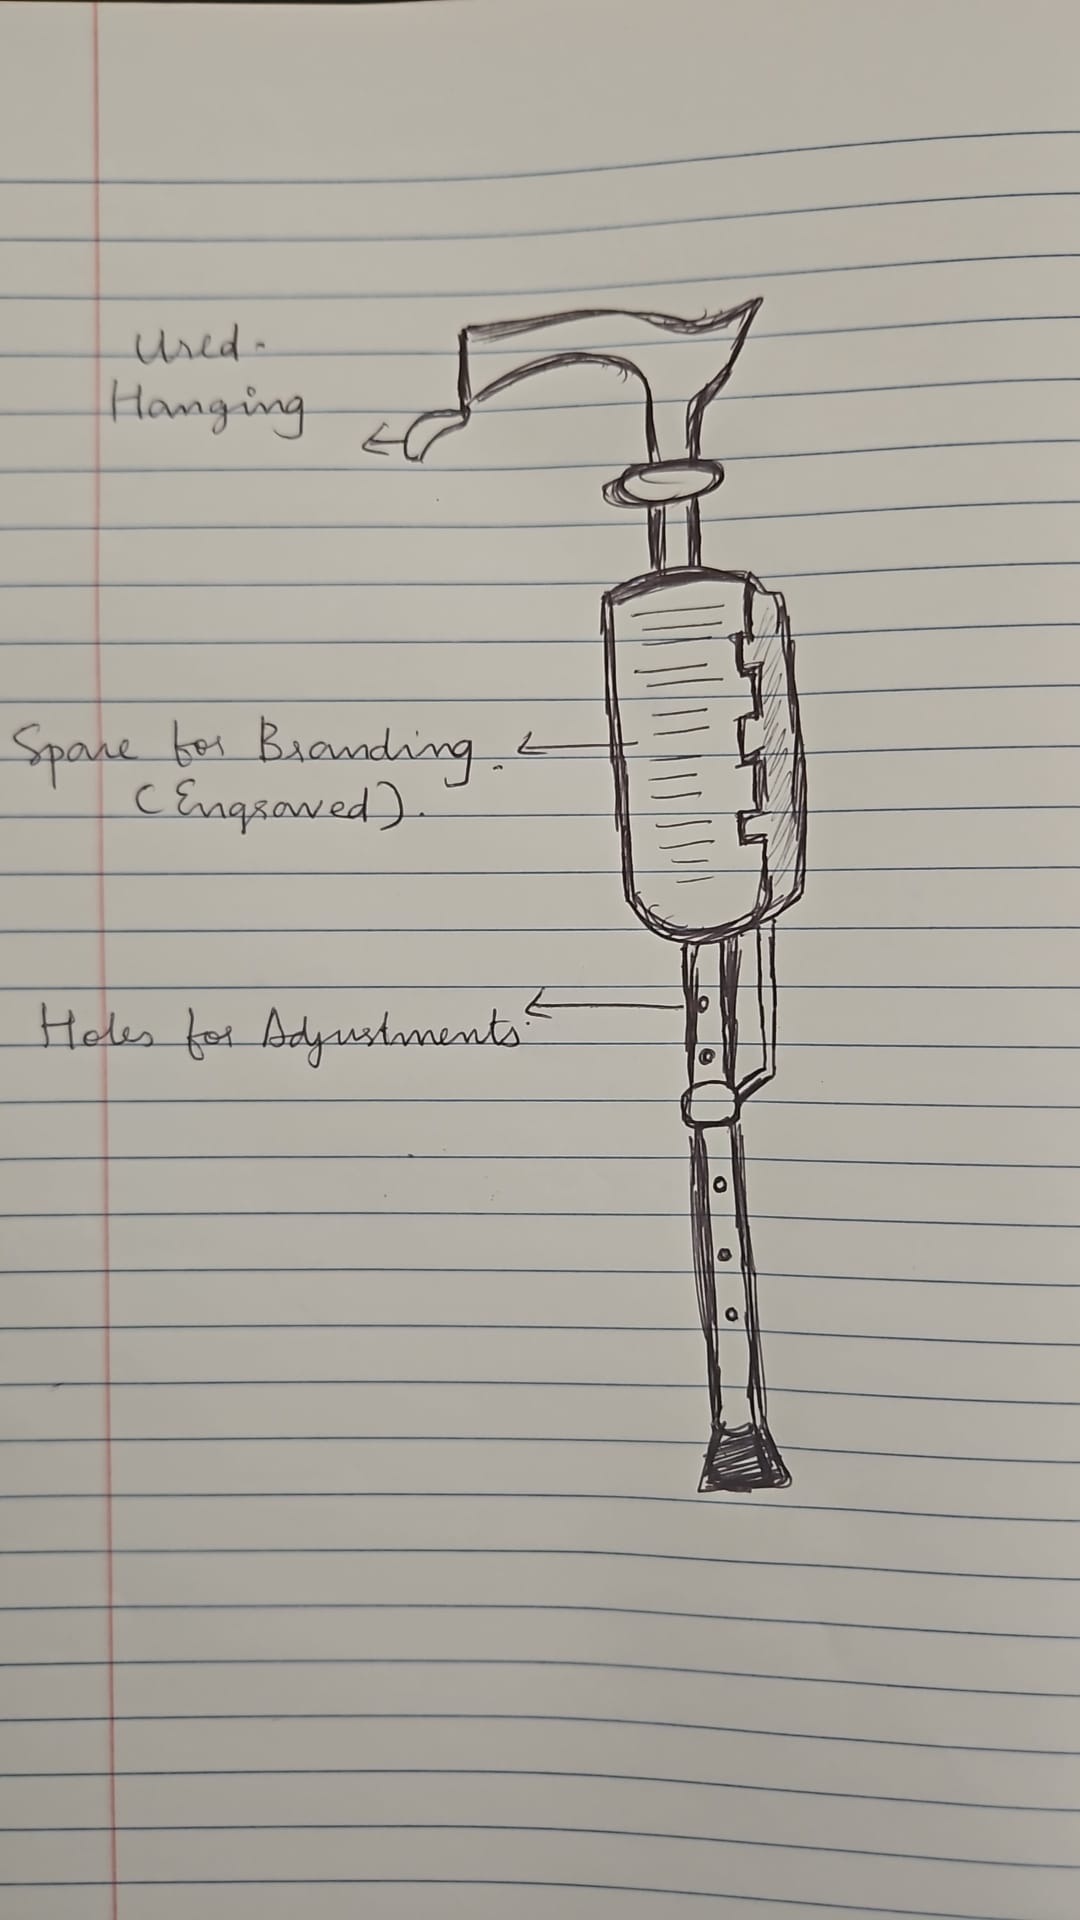 Used.
Hanging
Space for Branding.
(Engraved).
Holes for Adjustments.